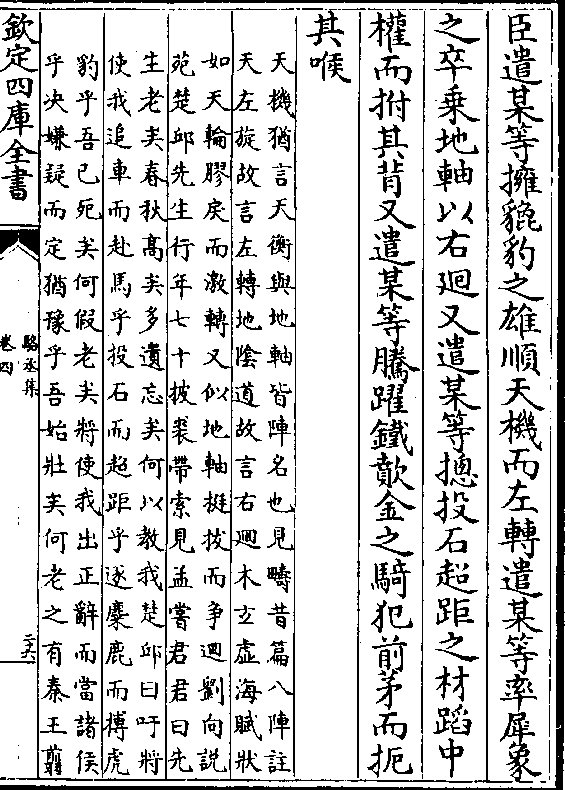 臣遣某等擁貔豹之雄順天機而左轉遣某等率犀象
之卒乗地軸以右廻又遣某等摠投石超距之材蹈中
權而拊其背又遣某等騰躍鐵歕金之騎犯前茅而扼
其喉
天機猶言天衡與地軸皆陣名也見疇昔篇八陣註
天左旋故言左轉地隂道故言右廻木𤣥虚海賦狀
如天輪膠戾而激轉又似地軸挺拔而争廻劉向說
苑楚邱先生行年七十披裘帶索見孟嘗君君曰先
生老矣春秋髙矣多遺忘矣何以教我楚邱曰吁將
使我追車而赴馬乎投石而超距乎逐麋鹿而搏虎
豹乎吾已死矣何假老矣將使我出正辭而當諸侯
乎决嫌疑而定猶豫乎吾始壯矣何老之有秦王翦
欽定四庫全書
駱丞集
卷四
二六